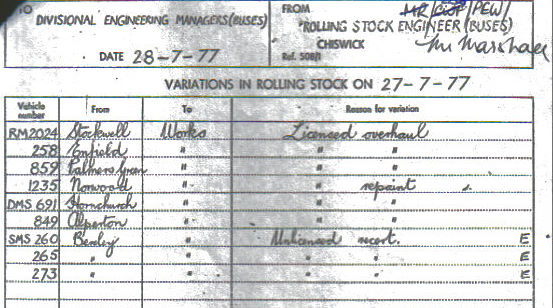 TO
DIVISIONAL ENGINEERING MANAGERS (BUSES)
DATE 28-7-77
FROM
ROLLING STOCK ENGINEER (BUSES)
CHISWICK
Ref. 508/1
Mr Marshall
VARIATIONS IN ROLLING STOCK ON 27-7-77
Vehicle number From To Reason for variation
RM2024 Stockwell Works Licenced overhaul
258 Enfield " " "
859 Palmers Green " " "
1235 Norwood " " repaint
DMS 691 Hornchurch " " "
849 Alperton " " "
SMS 260 Bexley " Unlicenced recert. E
265 " " " " E
273 " " " " E